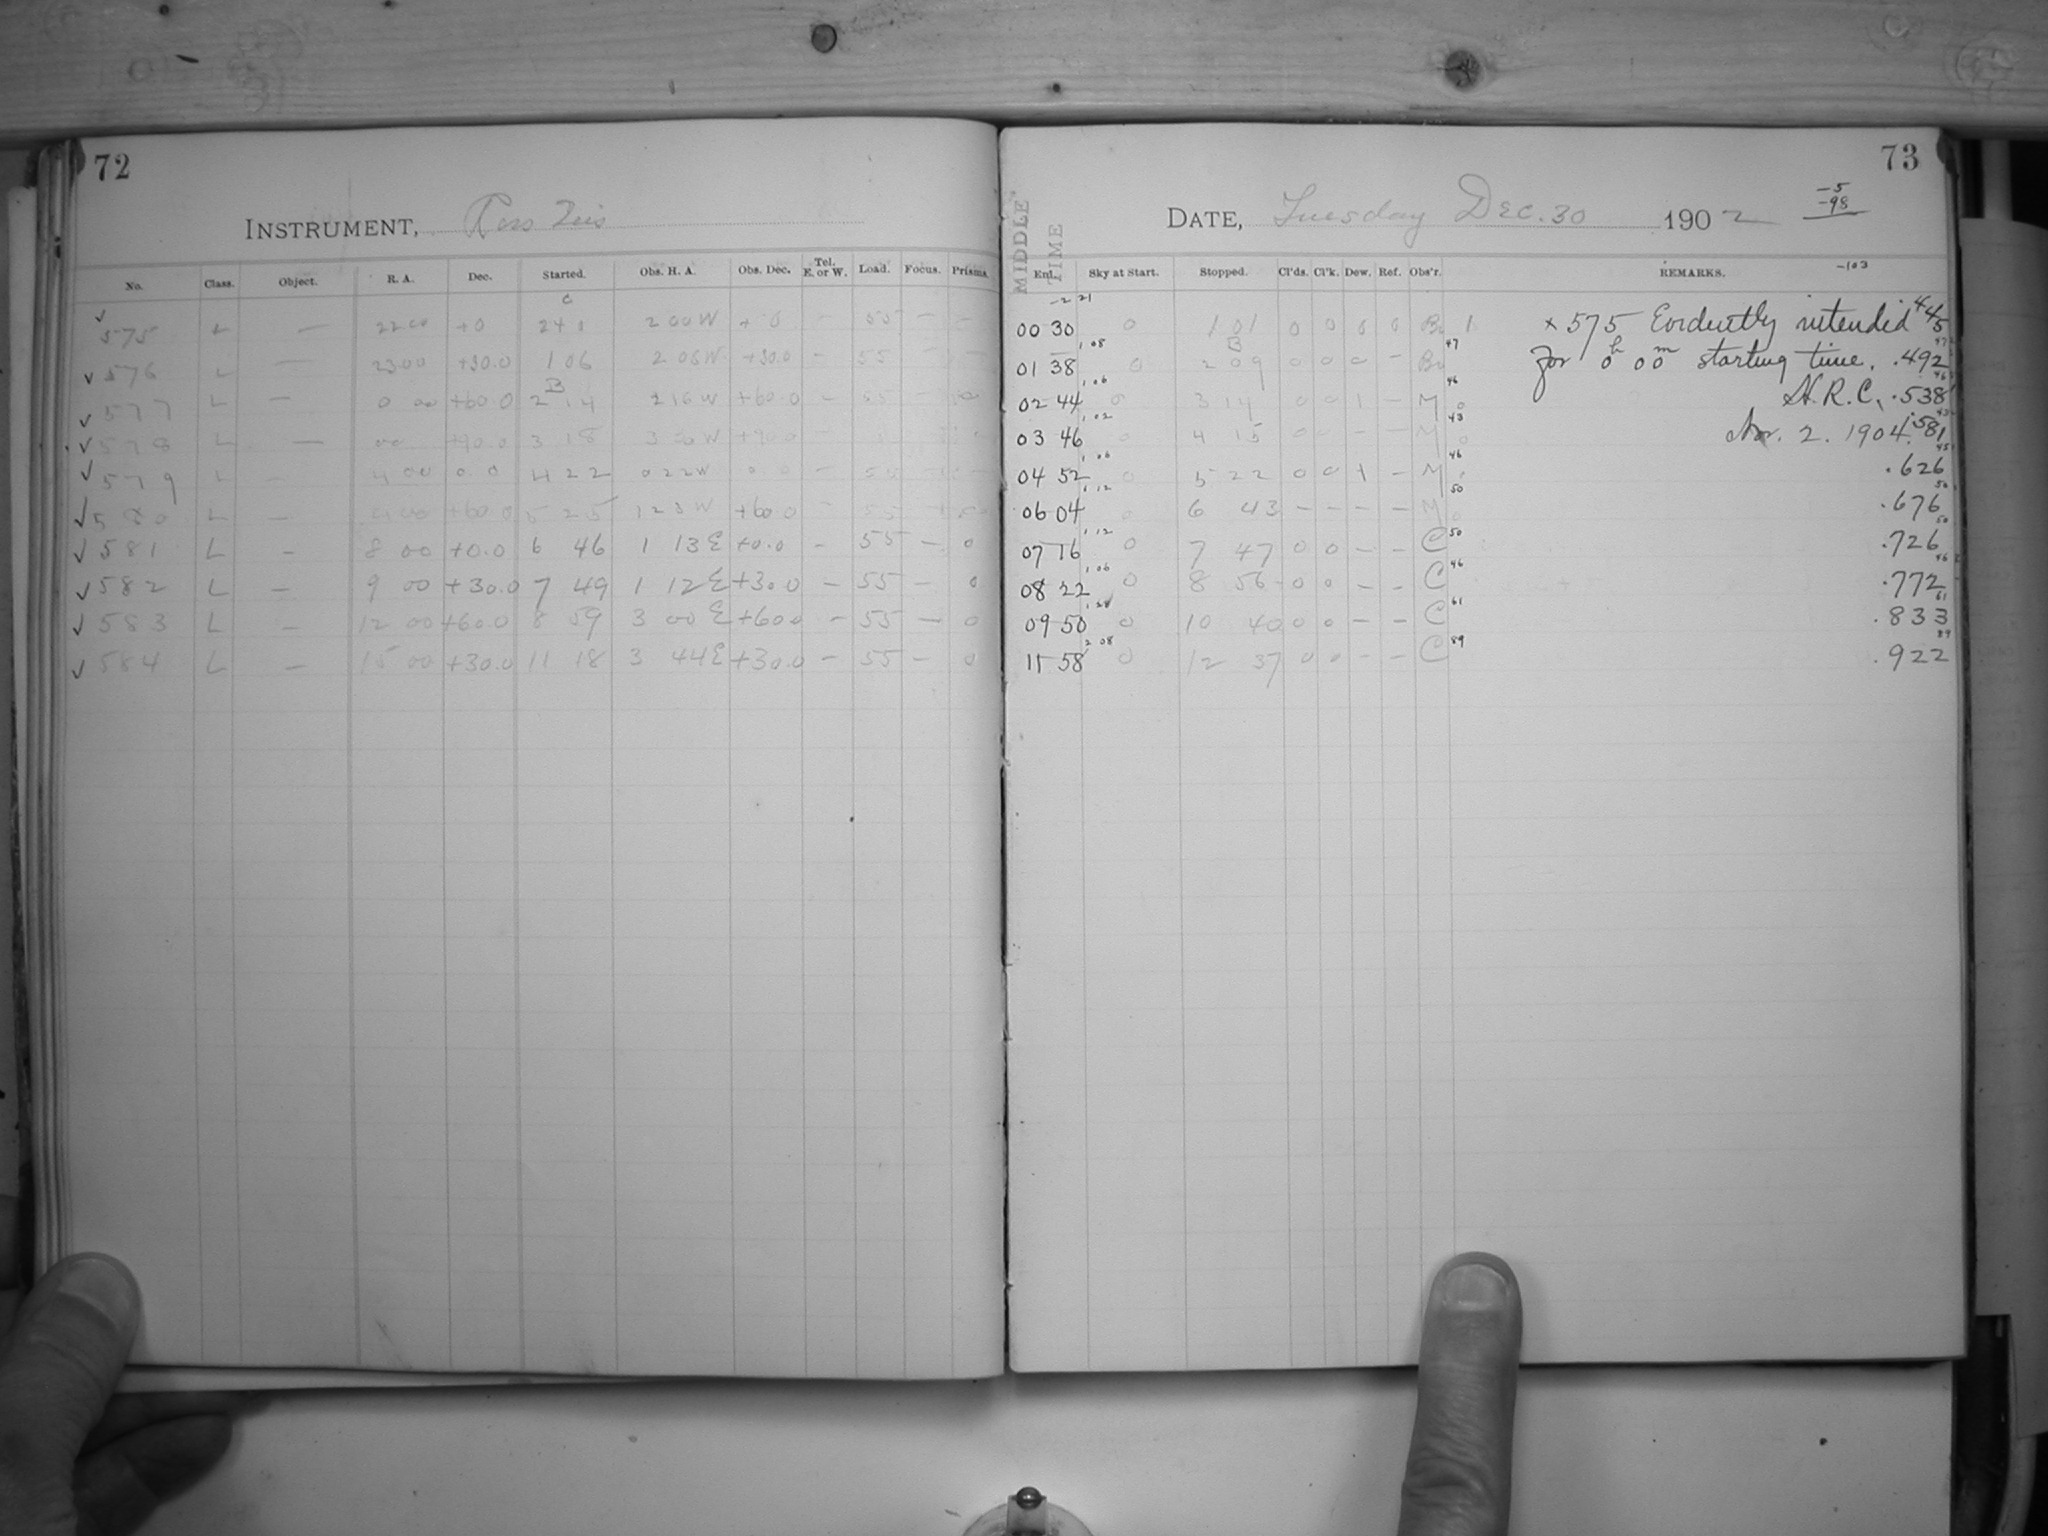 72
INSTRUMENT,
No. Class. Object. R. A. Dec. Started. Obs. H. A. Obs. Dec. Tel. E. or W. Load. Focus. Prisms.
✓ 575 L — 22 00 +0 24 1 2 00 W + 0 — 55 — —
✓ 576 L — 23 00 +30.0 1 06 2 06 W +30.0 — 55 — —
✓ 577 L — 0 00 +60.0 2 14 2 16 W +60.0 — 55 —
✓ 578 L — +90.0 3 18 W +90.0 —
✓ 579 L — 4 00 0.0 4 22 0 22 W 0.0 — 55
✓ 580 L — +60.0 5 25 1 23 W +60.0 — 55
✓ 581 L — 8 00 +0.0 6 46 1 13 E +0.0 — 55 — 0
✓ 582 L — 9 00 +30.0 7 49 1 12 E +30.0 — 55 — 0
✓ 583 L — 12 00 +60.0 8 59 3 00 E +60.0 — 55 — 0
✓ 584 L — 15 00 +30.0 11 18 3 44 E +30.0 — 55 — 0
73
MIDDLE TIME
DATE, Tuesday Dec. 30 1902
-5
-98
-103
End. Sky at Start. Stopped. Cl'ds. Cl'k. Dew. Ref. Obs'r. REMARKS.
00 30 0 1 01 0 0 0 0 1 × 575 Evidently intended 445
01 38 0 2 09 0 0 0 — 47 for 0h 00m starting time. .492
02 44 0 3 14 0 0 1 — M 46 H. R. C. .538
03 46 0 4 15 0 0 — — M 43 Nov. 2. 1904. .581
04 52 0 5 22 0 0 1 — M 46 .626
06 04 0 6 43 — — — — M 50 .676
07 16 0 7 47 0 0 — — C 50 .726
08 22 0 8 56 0 0 — — C 46 .772
09 50 0 10 40 0 0 — — C 61 .833
11 58 0 12 37 0 0 — — C 89 .922